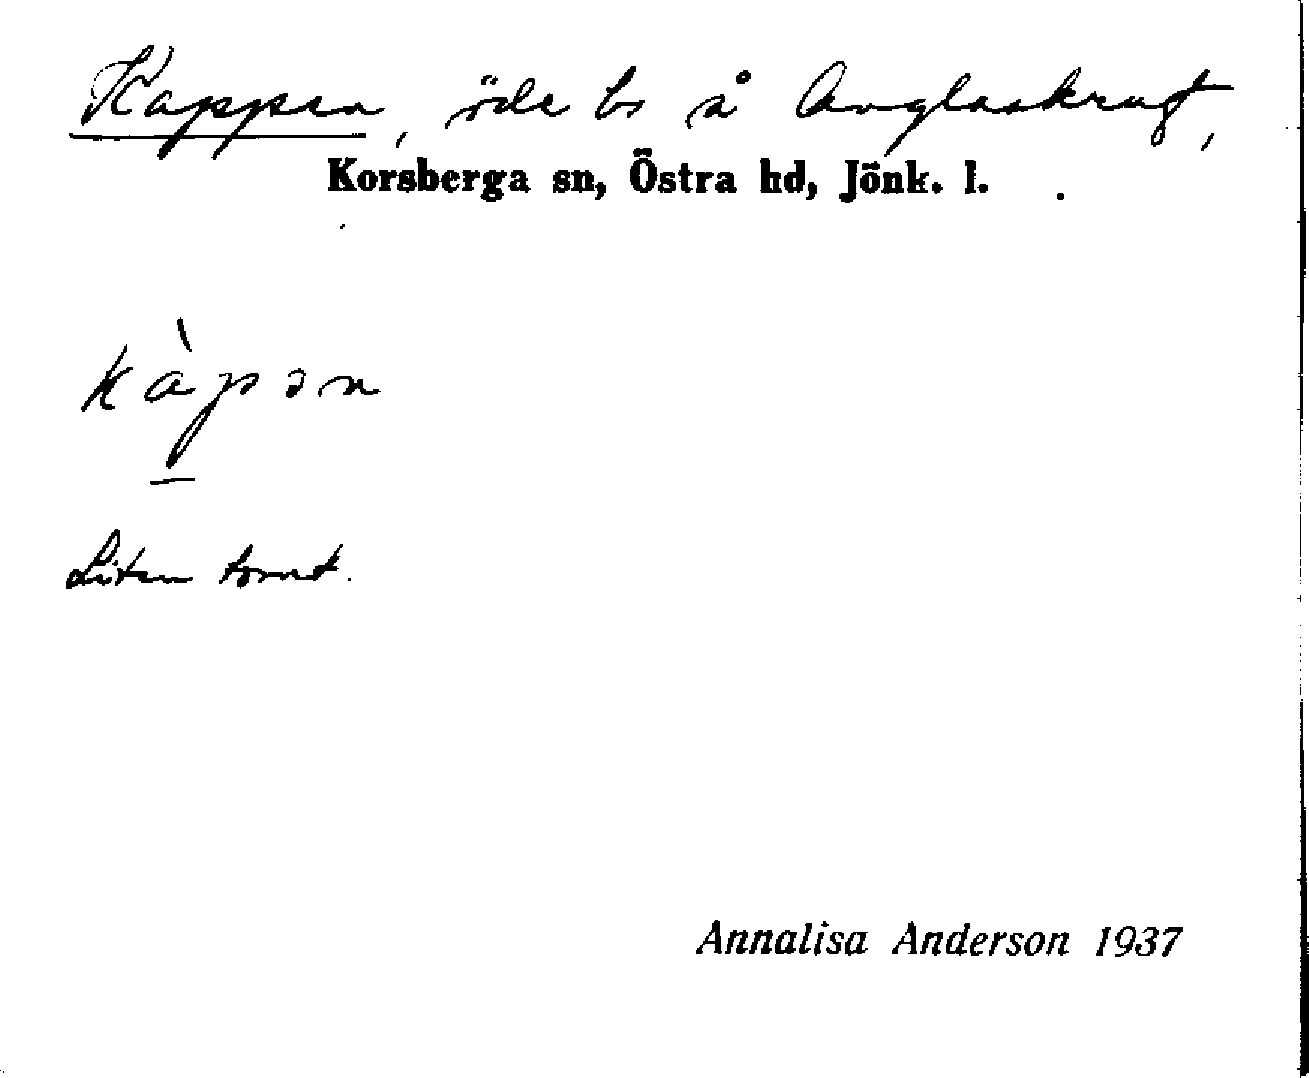 Kappen, öde ls å Anglaskruf,
Korsberga sn, Östra hd, Jönk. l.
kàpən
Liten tomt.
Annalisa Anderson 1937